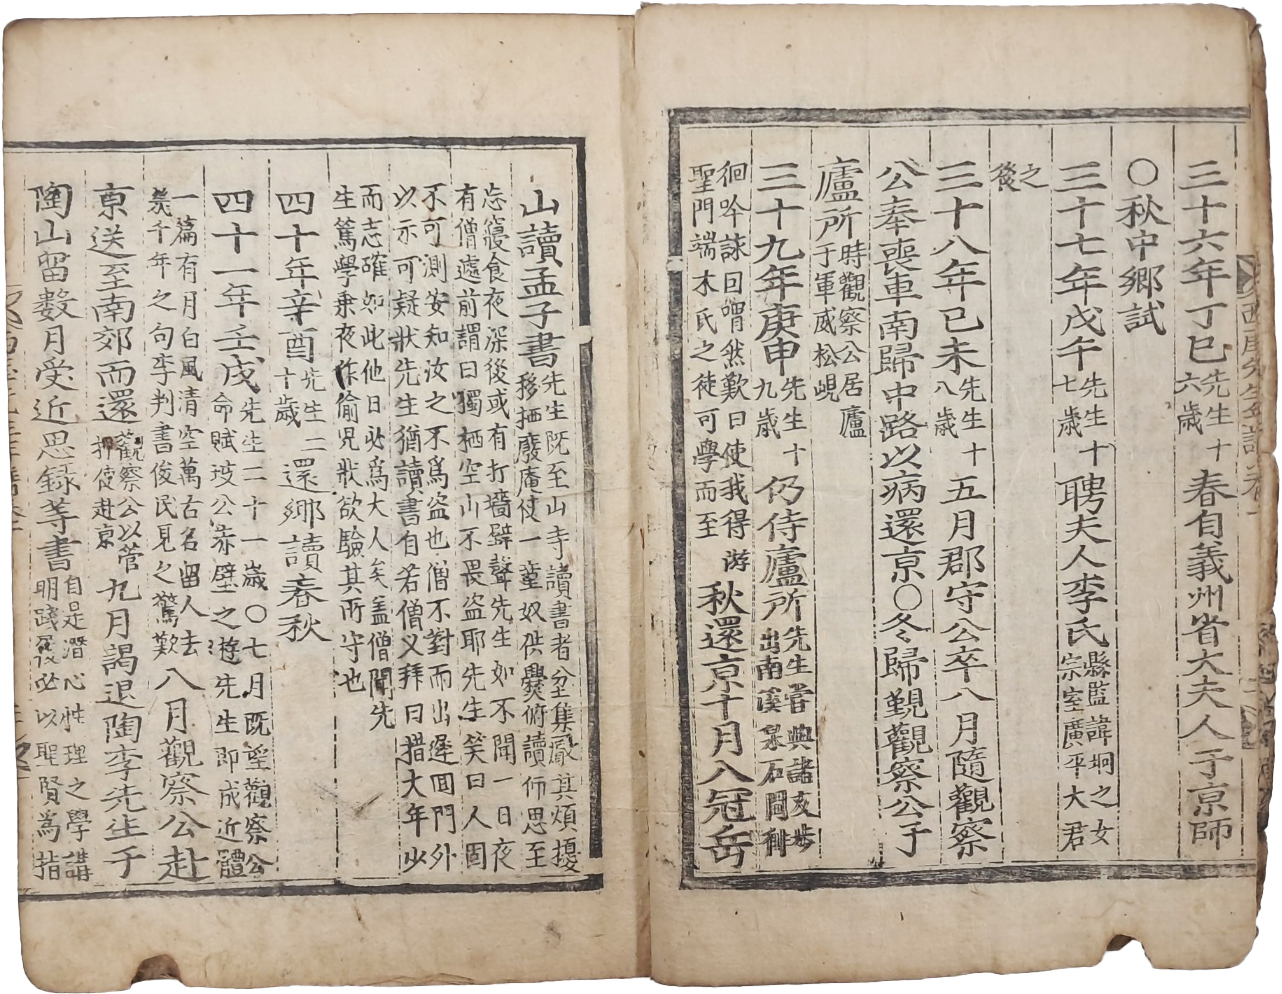 三十六年丁巳先生十六歲春自義州省大夫人于京師
○秋中鄉試
三十七年戊午先生十七歲聘夫人李氏縣監諱坰之女宗室廣平大君
之後
三十八年己未先生十八歲五月郡守公卒八月隨觀察
公奉喪車南歸中路以病還京○冬歸覲觀察公于
廬所時觀察公居廬于軍威松峴
三十九年庚申先生十九歲仍侍廬所先生嘗與諸友步出南溪泉石間
徊吟詠回喟然歎曰使我得游聖門端木氏之徒可學而至秋還京十月入冠岳
山讀孟子書先生既至山寺讀書者坌集厭其煩擾移栖廢庵使一童奴供爨俯讀仰思至
忘寢食夜深後或有打墻壁聲先生如不聞一日夜有僧遽前謂曰獨栖空山不畏盜耶先生笑曰人固
不可測安知汝之不爲盜也僧不對而出遲回門外以示可疑狀先生猶讀書自若僧乂拜曰措大年少
而志確如此他日必爲大人矣盖僧聞先生篤學乘夜作偷兒狀欲驗其所守也
四十年辛酉先生二十歲還鄉讀春秋
四十一年壬戌先生二十一歲○七月既望觀察公命賦坡公赤壁之遊先生即成近體
一篇有月白風清空萬古名留人去幾千年之句李判書俊民見之驚歎八月觀察公赴
京送至南郊而還觀察公以菅押使赴京九月謁退陶李先生于
陶山留數月受近思錄等書自是潛心性理之學講明踐履必以聖賢爲指